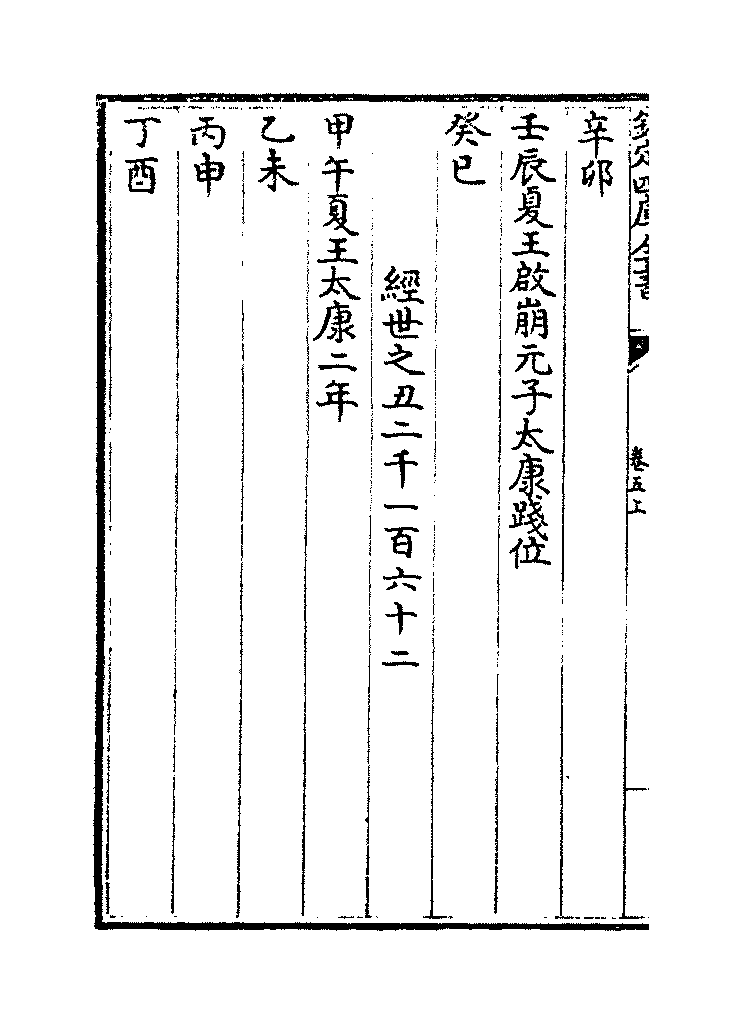 欽定四庫全書
卷五上
辛卯
壬辰夏王啟崩元子太康踐位
癸巳
經世之丑二千一百六十二
甲午夏王太康二年
乙未
丙申
丁酉